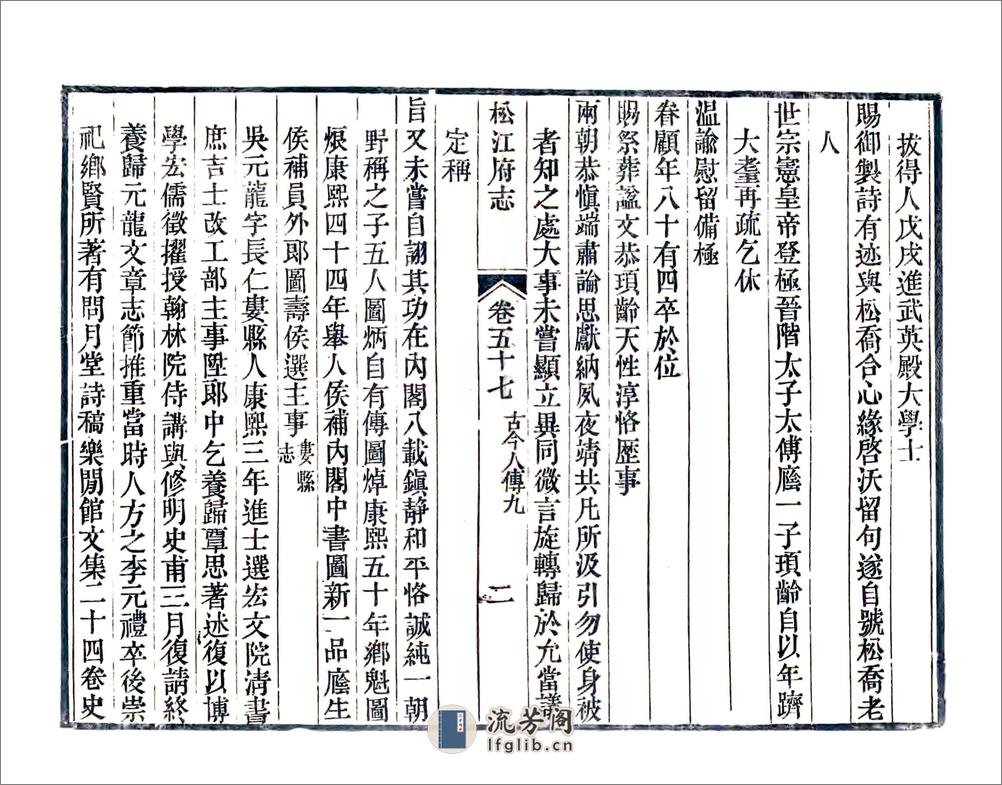 拔得人戊戌進武英殿大學士
賜御製詩有迹與松喬合心緣啓沃留句遂自號松喬老
人
世宗憲皇帝登極晉階太子太傅廕一子頊齡自以年躋
大耋再疏乞休
温諭慰留備極
眷顧年八十有四卒於位
賜祭葬諡文恭頊齡天性淳恪歷事
兩朝恭慎端肅論思獻納夙夜靖共凡所汲引勿使身被
者知之處大事未嘗顯立異同微言旋轉歸於允當議
定稱
松江府志
卷五十七
古今人傳九
二
旨又未嘗自詡其功在內閣八載鎭静和平恪誠純一朝
野稱之子五人圖炳自有傳圖焯康熙五十年鄉魁圖
烺康熙四十四年舉人侯補內閣中書圖新一品廕生
侯補員外郎圖壽侯選主事婁縣志
吳元龍字長仁婁縣人康熙三年進士選宏文院淸書
庶吉士改工部主事陞郎中乞養歸覃思著述復以博
學宏儒徵擢授翰林院侍講與修明史甫三月復請終
養歸元龍文章志節推重當時人方之李元禮卒後崇
祀鄉賢所著有問月堂詩稿樂閒館文集二十四卷史
流芳閣
lfglib.cn